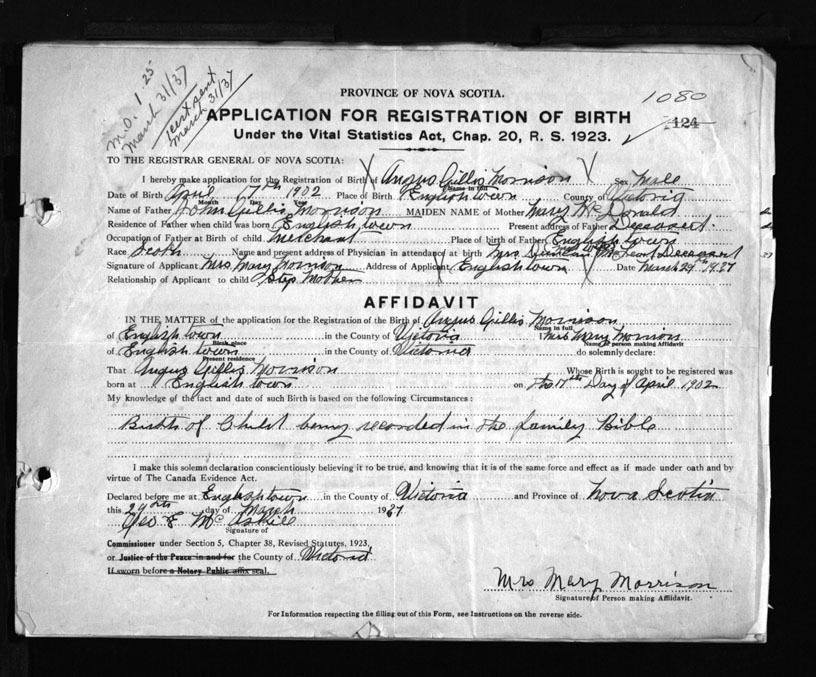 M.O. 1.25
March 31/37
1 cert sent
March 31/37
PROVINCE OF NOVA SCOTIA.
1080
APPLICATION FOR REGISTRATION OF BIRTH
124
Under the Vital Statistics Act, Chap. 20, R. S. 1923.
TO THE REGISTRAR GENERAL OF NOVA SCOTIA:
I hereby make application for the Registration of Birth of Angus Gillis Morrison Sex Male
Name in full
Date of Birth April 17th 1902 Place of Birth Englishtown County of Victoria
Month Day Year
Name of Father John Gillis Morrison MAIDEN NAME of Mother Mary McDonald
Residence of Father when child was born Englishtown Present address of Father Deceased.
Occupation of Father at Birth of child merchant Place of birth of Father Englishtown
Race Scotch Name and present address of Physician in attendance at birth Mrs Duncan Deceased
Signature of Applicant Mrs. Mary Morrison Address of Applicant Englishtown Date March 29th 1937
Relationship of Applicant to child Step Mother
AFFIDAVIT
IN THE MATTER of the application for the Registration of the Birth of Angus Gillis Morrison
Name in full
of Englishtown in the County of Victoria I Mrs Mary Morrison
Birth place Name of person making Affidavit
of Englishtown in the County of Victoria do solemnly declare:
Present residence
That Angus Gillis Morrison Whose Birth is sought to be registered was
born at Englishtown on the 17th Day of April 1902
My knowledge of the fact and date of such Birth is based on the following Circumstances:
Birth of Child being recorded in the family Bible
I make this solemn declaration conscientiously believing it to be true, and knowing that it is of the same force and effect as if made under oath and by
virtue of The Canada Evidence Act.
Declared before me at Englishtown in the County of Victoria and Province of Nova Scotia
this 29th day of March 1937
Geo. E. McAskill
Signature of
Commissioner under Section 5, Chapter 38, Revised Statutes, 1923,
or Justice of the Peace in and for the County of Victoria
If sworn before a Notary Public affix seal.
Mrs Mary Morrison
Signature of Person making Affidavit.
For Information respecting the filling out of this Form, see Instructions on the reverse side.